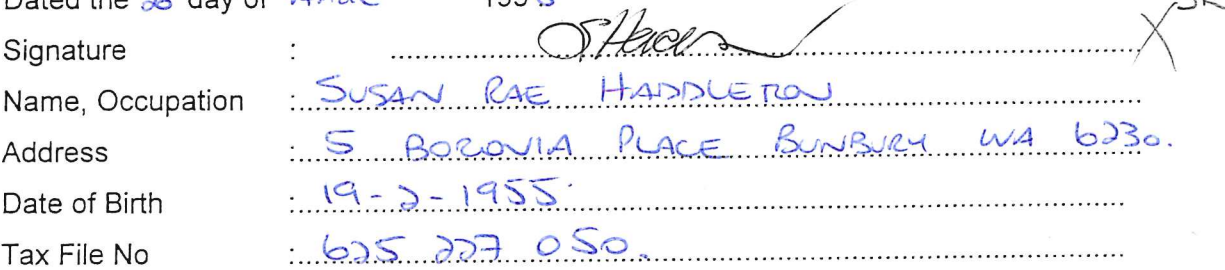 Dated the 28 day of
Signature :
Name, Occupation : SUSAN RAE HADDLETON
Address : 5 BORONIA PLACE BUNBURY WA 6230.
Date of Birth : 19-2-1955
Tax File No : 625 227 050.